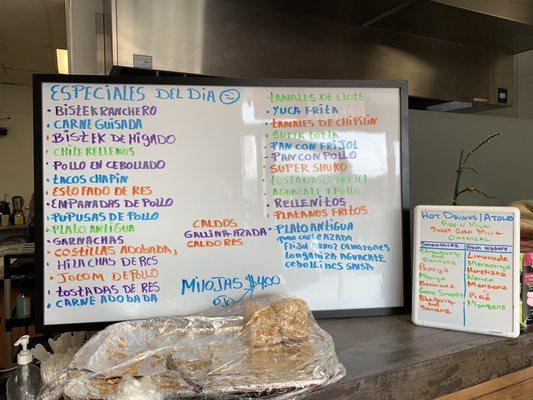 ESPECIALES DEL DIA
BISTEK RANCHERO
CARNE GUISADA
BISTEK DE HIGADO
CHILE RELLENOS
POLLO EN CEBOLLADO
TACOS CHAPIN
ESTOFADO DE RES
EMPANADAS DE POLLO
PUPUSAS DE POLLO
PLATO ANTIGUA
GARNACHAS
COSTILLAS ADOBADA,
HILACHAS DE RES
JOCOM DE POLLO
TOSTADAS DE RES
CARNE ADOBADA
CALDOS
GALLINA-AZADA
CALDO RES
MILOJAS $4.00
TAMALES DE ELOTE
YUCA FRITA
TAMALES DE CHIPILIN
SUPER TORTA
PAN CON FRIJOL
PAN CON POLLO
SUPER SHUKO
TOSTADAS DE
AGUACATE Y POLLO
RELLENITOS
PLATANOS FRITOS
PLATO ANTIGUA
FRIJOL ARROZ CAMARONES
LONGANIZA AGUACATE
CEBOLLINES SALSA
HOT DRINKS/ATOLES
RICE N MILK
SWEET CORN MILK
OATMEAL
SMOOTHIES
STRAWBERRY
AND BANANA
PAPAYA
MANGO
BANANA
BLUEBERRY
AND BANANA
FRESH WATER
LIMONADA
MARACUYA
HORCHATA
MANZANA
PIÑA